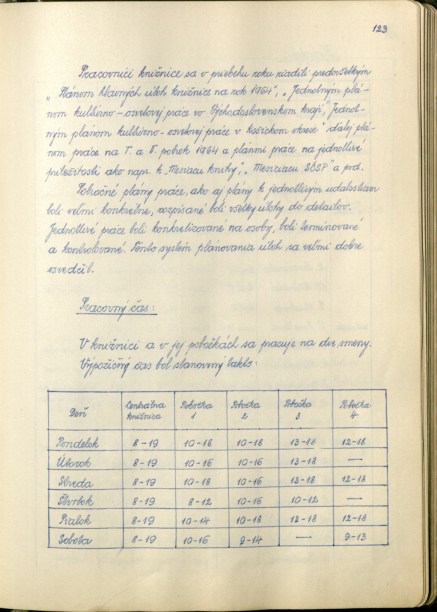 123
Pracovníci knižnice sa v priebehu roku riadili predovšetkým
„Plánom hlavných úloh knižnice na rok 1964“, „Jednotným plá-
nom kultúrno-osvetovej práce vo Východoslovenskom kraji“, „Jednot-
ným plánom kultúrno-osvetovej práce v Košickom okrese“ ďalej plá-
nom práce na I. a II. polrok 1964 a plánmi práce na jednotlivé
príležitosti ako napr. k „Mesiacu knihy“, „Mesiacu ČSSP“ a pod.
Polročné plány práce, ako aj plány k jednotlivým udalostiam
boli veľmi konkrétne, rozpísané boli všetky úlohy do detailov.
Jednotlivé práce boli konkretizované na osoby, boli termínované
a kontrolované. Tento systém plánovania úloh sa veľmi dobre
osvedčil.
Pracovný čas:
V knižnici a v jej pobočkách sa pracuje na dve smeny.
Výpožičný čas bol stanovený takto:
Deň Centrálna knižnica Pobočka 1 Pobočka 2 Pobočka 3 Pobočka 4
Pondelok 8-19 10-18 10-18 13-18 12-18
Útorok 8-19 10-16 10-16 13-18 —
Streda 8-19 10-18 10-16 13-18 12-18
Štvrtok 8-19 8-12 10-16 10-12 —
Piatok 8-19 10-14 10-18 12-18 12-18
Sobota 8-19 10-16 9-14 — 9-13